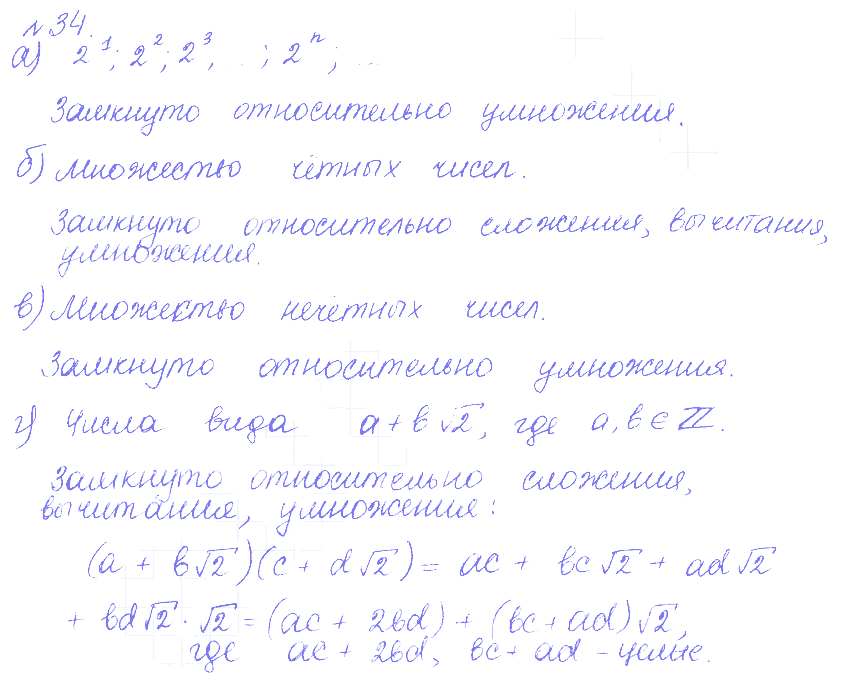 № 34.
а) 2¹; 2²; 2³, ...; 2ⁿ; ...
Замкнуто относительно умножения.
б) Множество чётных чисел.
Замкнуто относительно сложения, вычитания,
умножения.
в) Множество нечётных чисел.
Замкнуто относительно умножения.
г) Числа вида a + b√2, где a, b ∈ ℤ.
Замкнуто относительно сложения,
вычитания, умножения:
(a + b√2)(c + d√2) = ac + bc√2 + ad√2
+ bd√2 · √2 = (ac + 2bd) + (bc + ad)√2,
где ac + 2bd, bc + ad – целые.